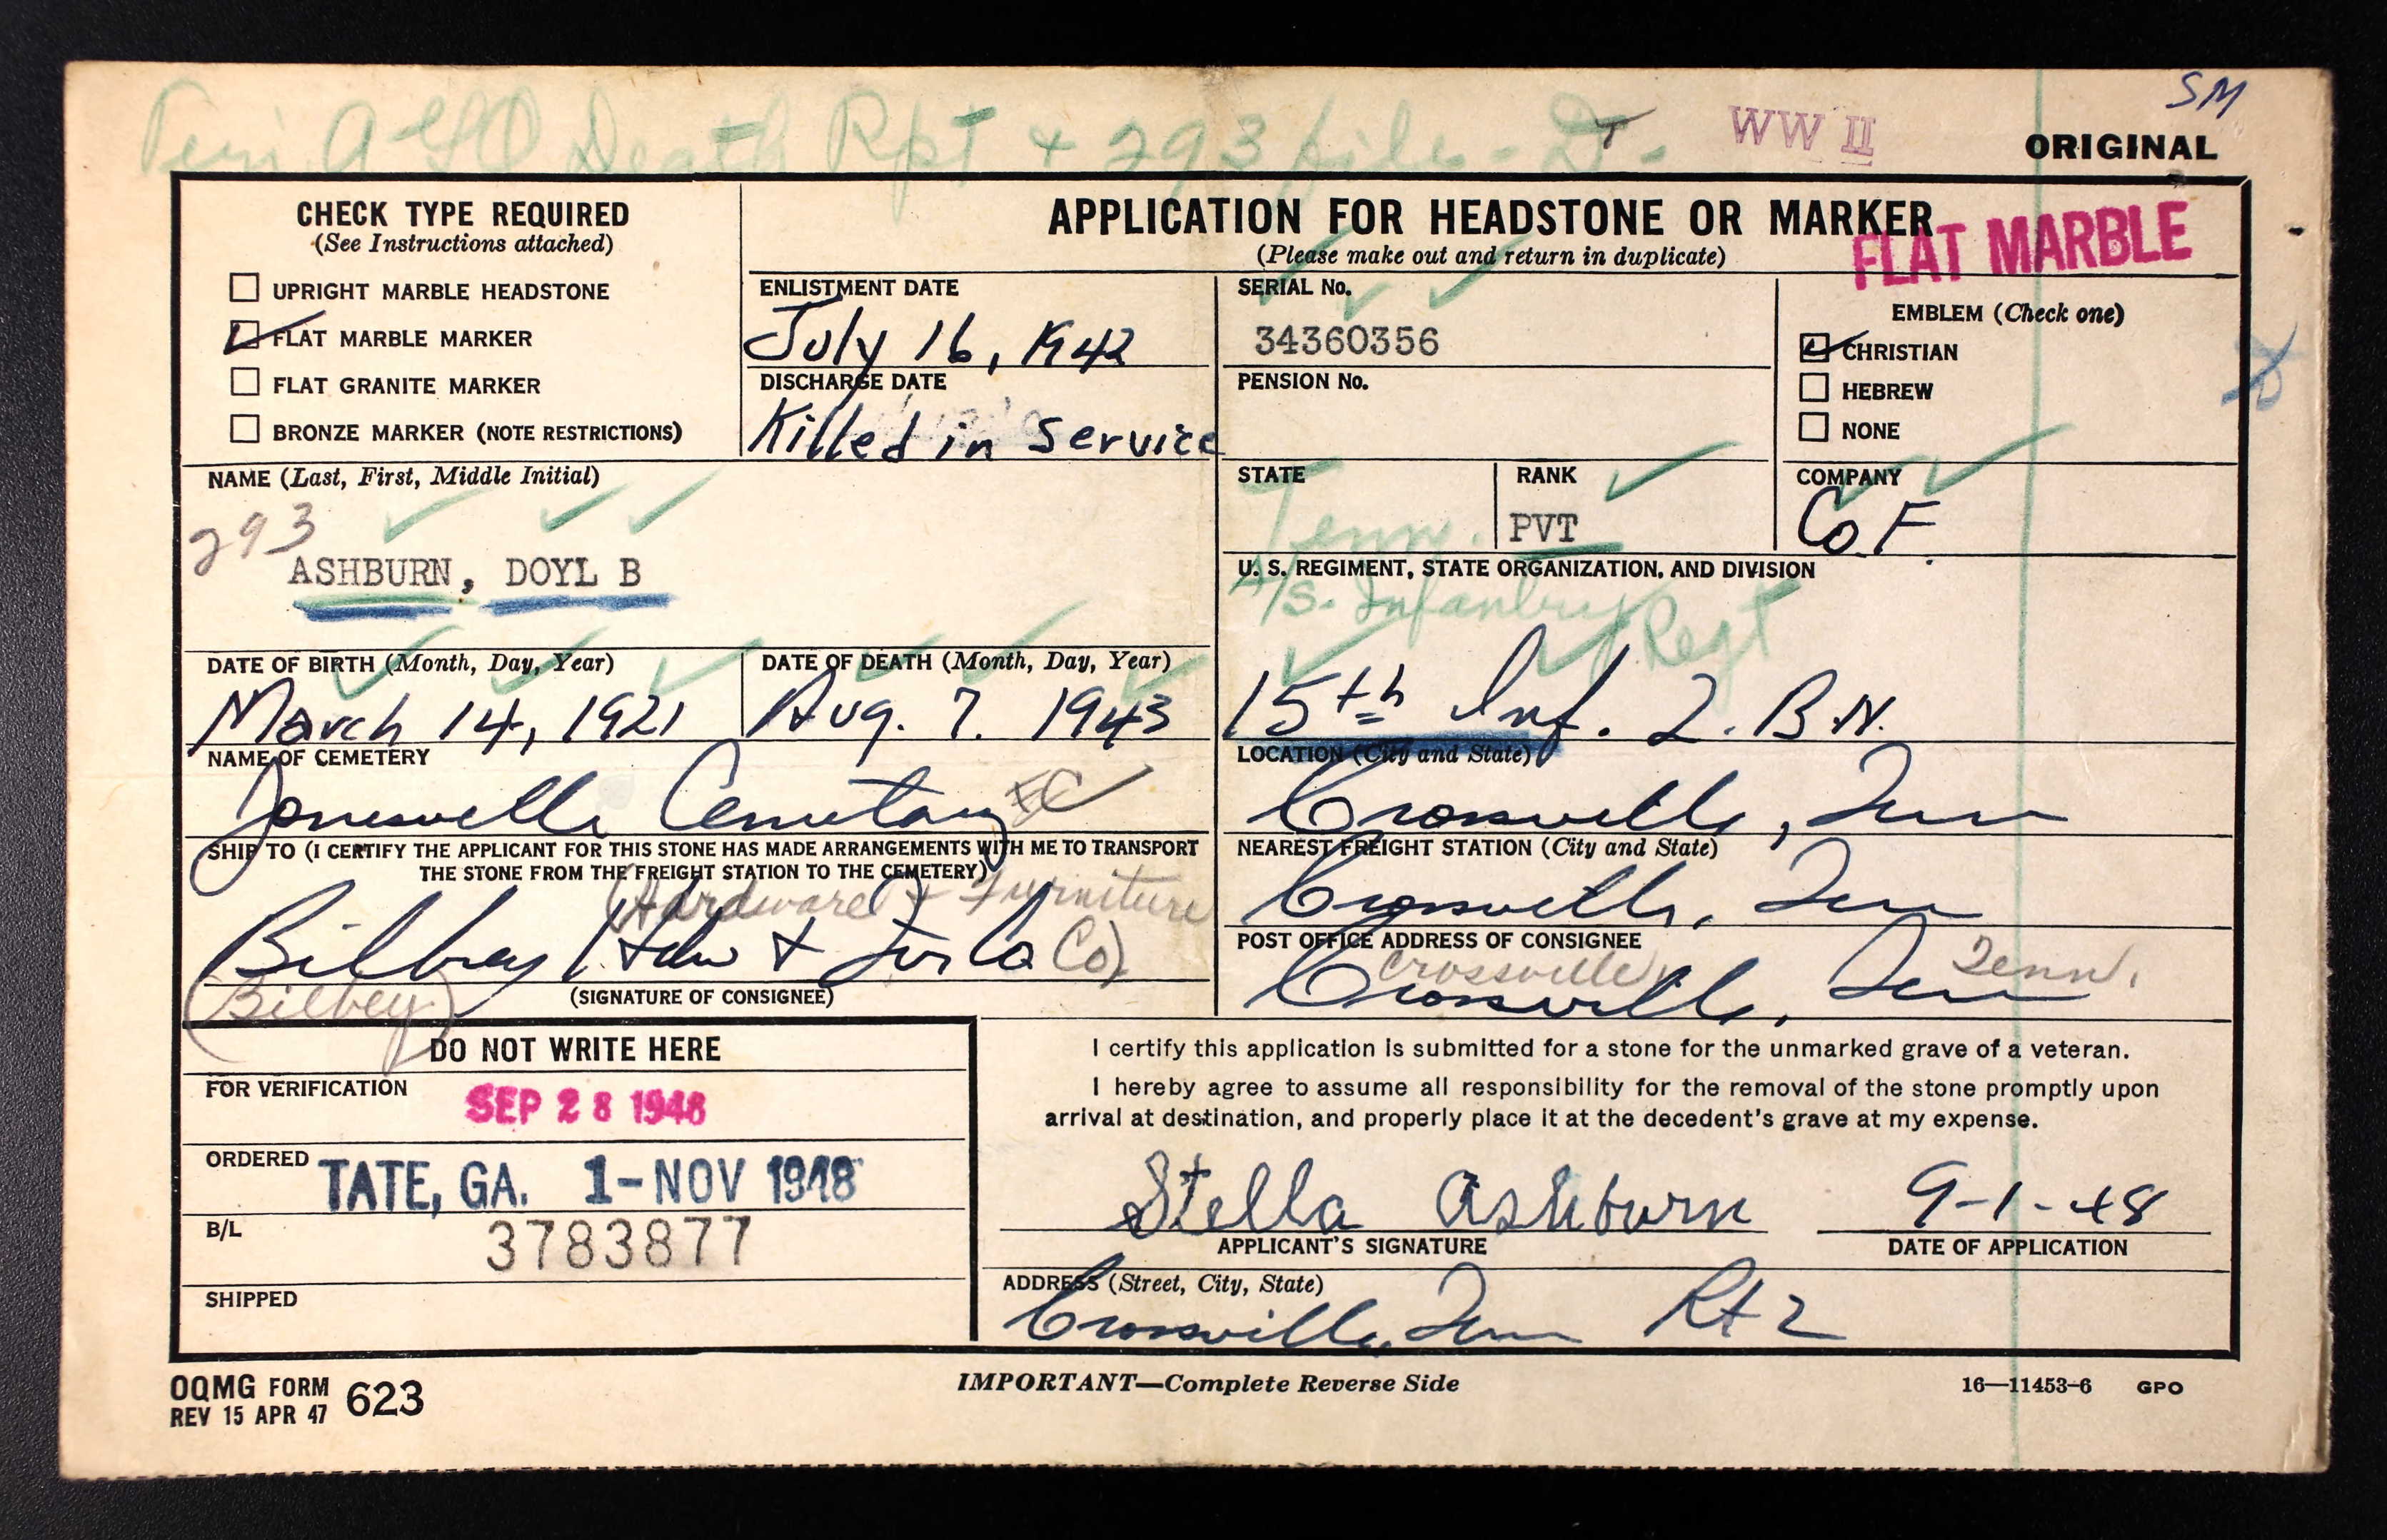 Per AGO Death Rpt + 293 file -
WW II
SM
ORIGINAL
CHECK TYPE REQUIRED
(See Instructions attached)
UPRIGHT MARBLE HEADSTONE
FLAT MARBLE MARKER
FLAT GRANITE MARKER
BRONZE MARKER (NOTE RESTRICTIONS)
APPLICATION FOR HEADSTONE OR MARKER
(Please make out and return in duplicate)
FLAT MARBLE
ENLISTMENT DATE
July 16, 1942
DISCHARGE DATE
Killed in Service
SERIAL No.
34360356
PENSION No.
EMBLEM (Check one)
CHRISTIAN
HEBREW
NONE
NAME (Last, First, Middle Initial)
293
ASHBURN, DOYL B
STATE
Tenn.
RANK
PVT
COMPANY
Co. F.
U. S. REGIMENT, STATE ORGANIZATION, AND DIVISION
Infantry Regt
15th Inf. 2. B.N.
DATE OF BIRTH (Month, Day, Year)
March 14, 1921
DATE OF DEATH (Month, Day, Year)
Aug. 7. 1943
NAME OF CEMETERY
Jonesville Cemetary
LOCATION (City and State)
Crossville, Tenn
SHIP TO (I CERTIFY THE APPLICANT FOR THIS STONE HAS MADE ARRANGEMENTS WITH ME TO TRANSPORT
THE STONE FROM THE FREIGHT STATION TO THE CEMETERY)
(Hardware + Furniture
Bilbrey Hdw + Fur Co Co)
(Bilbey)
(SIGNATURE OF CONSIGNEE)
NEAREST FREIGHT STATION (City and State)
Crossville, Tenn
POST OFFICE ADDRESS OF CONSIGNEE
Crossville, Tenn.
Crossville, Tenn
DO NOT WRITE HERE
FOR VERIFICATION
SEP 28 1948
ORDERED
TATE, GA. 1-NOV 1948
B/L
3783877
SHIPPED
I certify this application is submitted for a stone for the unmarked grave of a veteran.
I hereby agree to assume all responsibility for the removal of the stone promptly upon
arrival at destination, and properly place it at the decedent's grave at my expense.
Stella Ashburn
9-1-48
APPLICANT'S SIGNATURE
DATE OF APPLICATION
ADDRESS (Street, City, State)
Crossville, Tenn Rt 2
OQMG FORM 623
REV 15 APR 47
IMPORTANT—Complete Reverse Side
16—11453-6 GPO